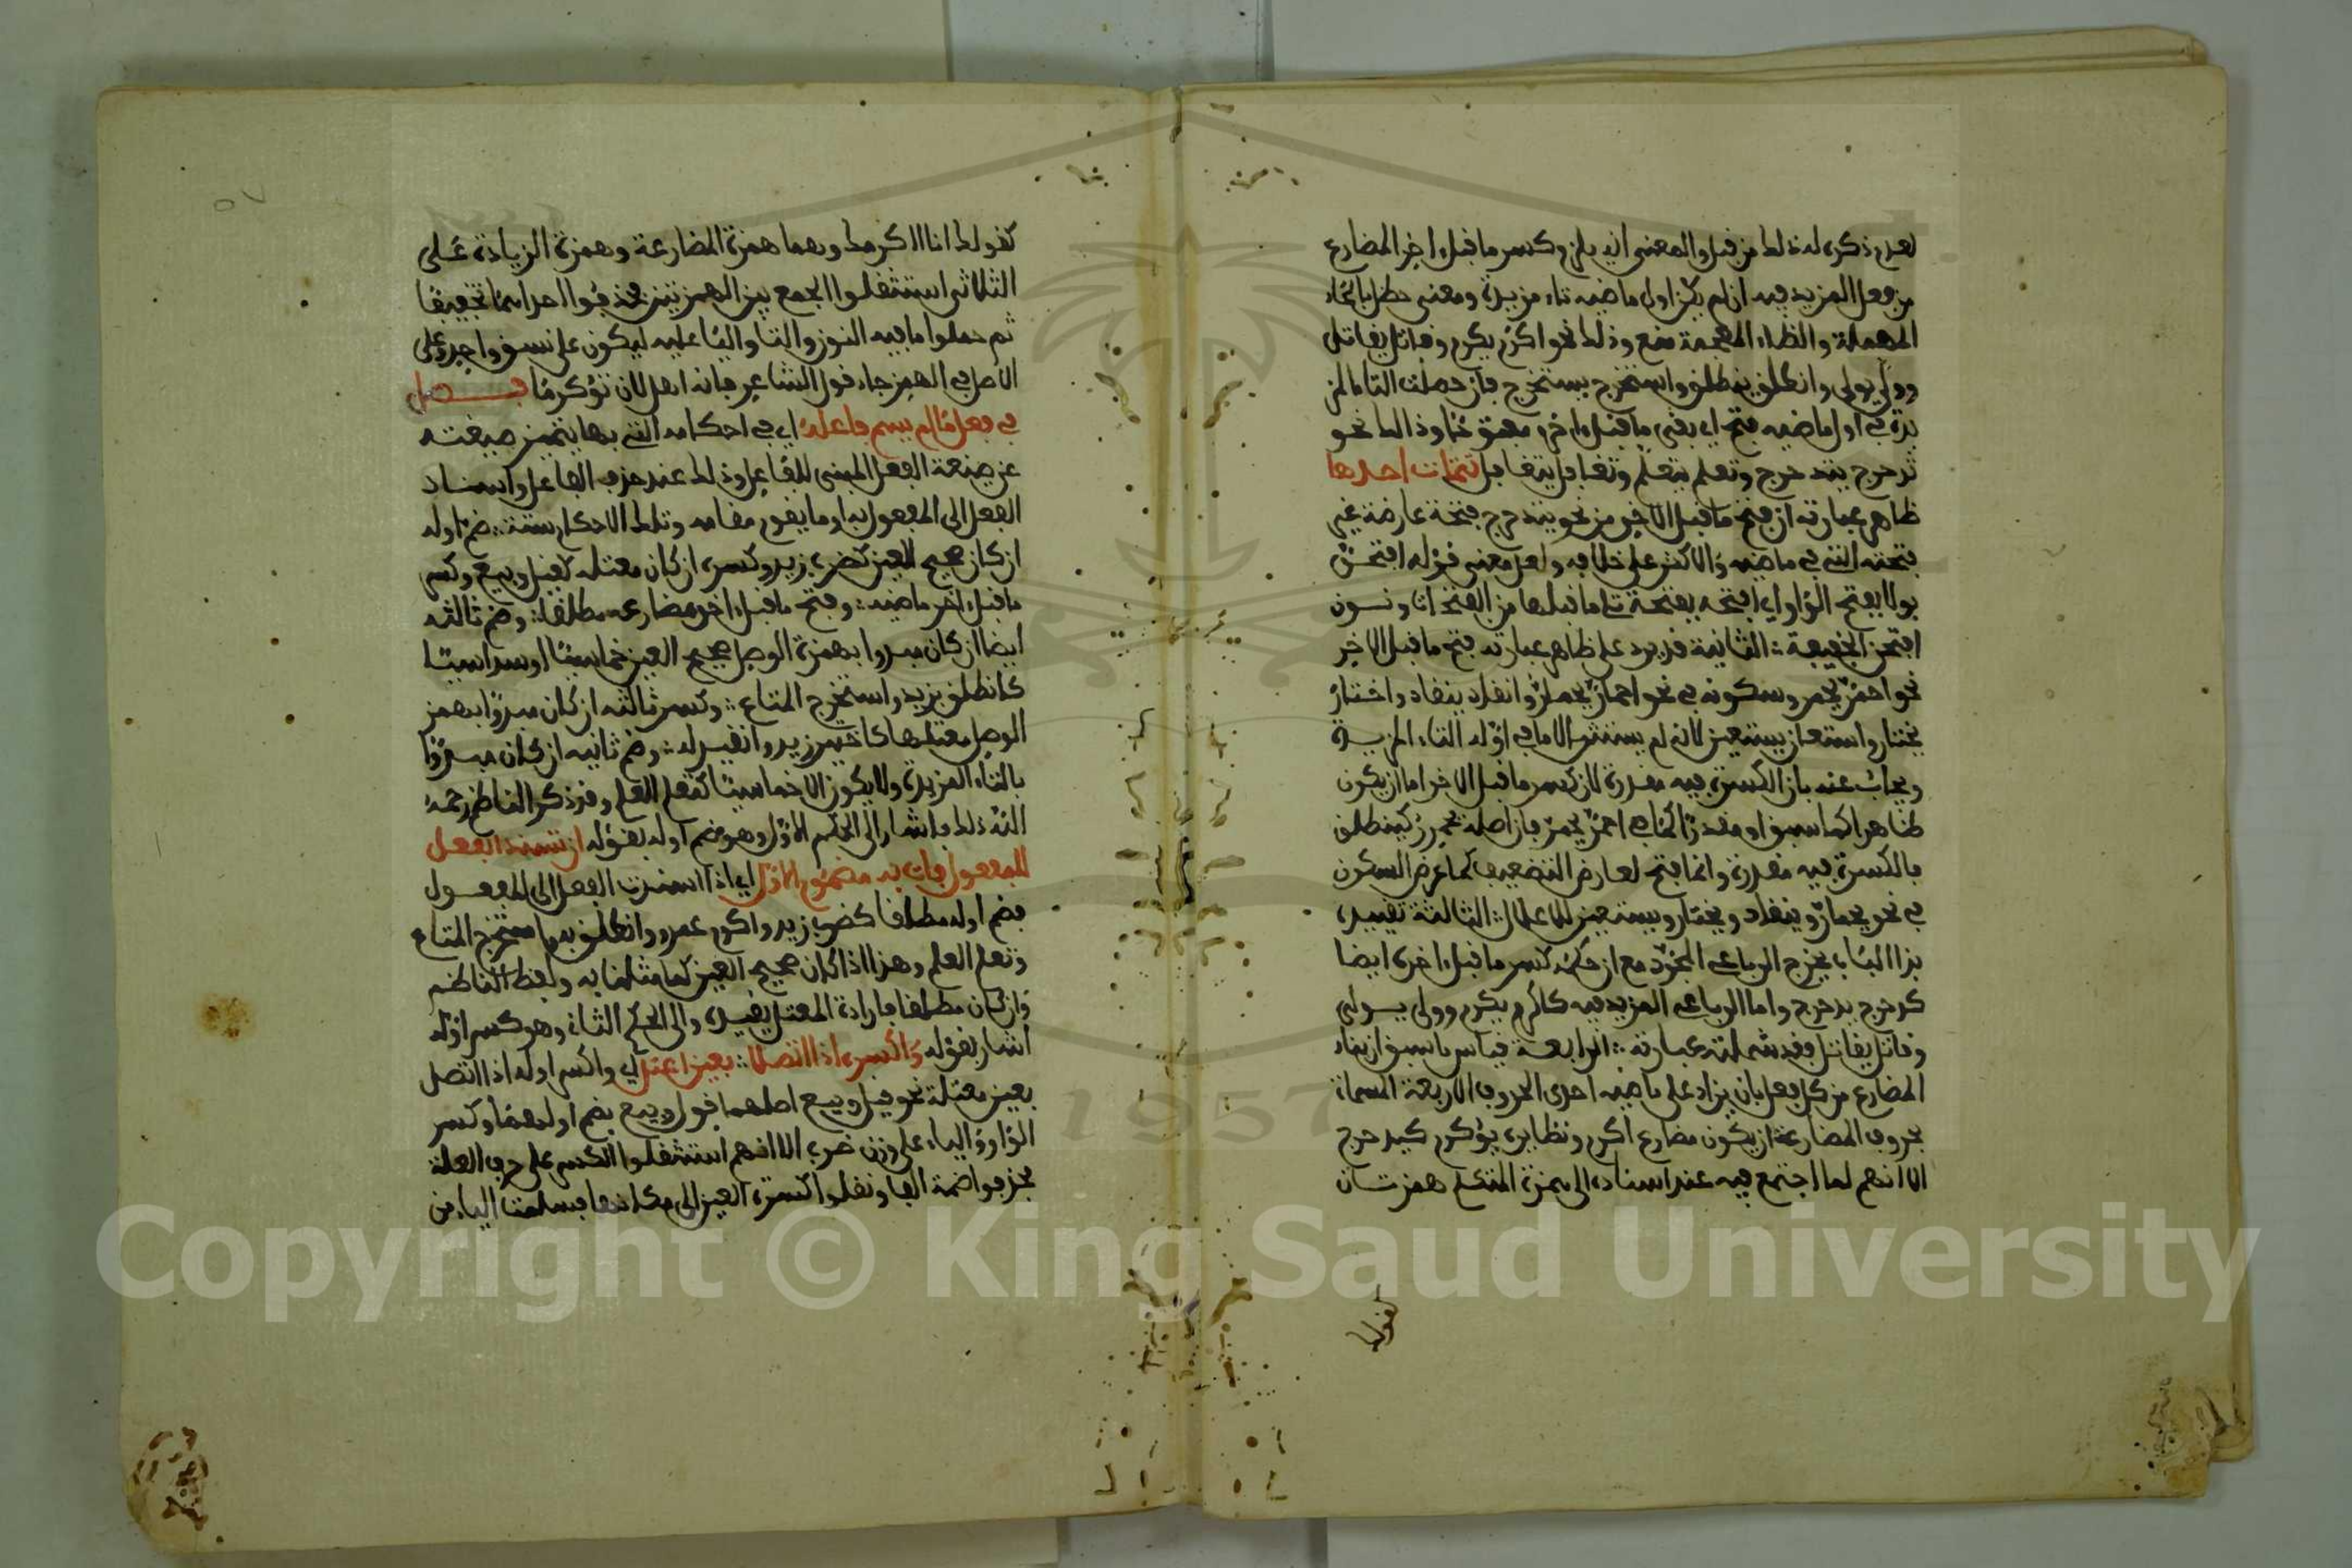 لعدم ذكره له ذلك من قبل والمعنى انه يلزم كسر ما قبل اخر المضارع
من فعل المزيد فيه ان لم يكن اول ماضيه تاء مزيدة ومعنى حظل بالحاء
المهملة والظاء المعجمة منع وذلك نحو اكرم يكرم وقاتل يقاتل
وولى يولى وانطلق ينطلق واستخرج يستخرج فان حصلت التا المز
يدة في اول ماضيه فتح اي بقى ما قبل اخره مفتوحا وذالك نحو
تدحرج يتدحرج وتعلم يتعلم وتغافل يتغافل تتمات احدها
ظاهر عبارته ان فتح ما قبل الاخر من نحو يتدحرج فتحة عارضة غير
فتحته التي في ماضيه والاكثر على خلافه ولعل معنى قوله افتحن
بولا بفتح الواو اي افتحه بفتحة تلي ما قبلها من الفتحات ونون
افتحن الخفيفة الثانية قد يرد على ظاهر عبارته فتح ما قبل الاخر
نحو احمر يحمر وسكونه في نحو احمار يحمار وانقاد ينقاد واختار
يختار واستعان يستعين لانه لم يستثن الا ما في اوله التاء المزيدة
ويجاب عنه بان الكسرة فيه مقدرة لان كسر ما قبل الاخر اما ان يكون
ظاهرا كما سبق او مقدرا كما في احمر يحمر فان اصله يحمرر كينطلق
فالكسرة فيه مقدرة وانما فتح لعارض التضعيف كما عرض السكون
في نحو يحمار وينقاد ويختار ويستعين للاعلال الثالثة تقييده
بذا الباب يخرج الرباعي المجرد مع ان حكمه كسر ما قبل اخره ايضا
كدحرج يدحرج واما الرباعي المزيد فيه كاكرم يكرم وولى يولى
وقاتل يقاتل فقد شملته عبارته الرابعة قياس ما سبق ان بناء
المضارع من كل فعل بان يزاد على ماضيه احدى الحروف الاربعة المسماة
بحروف المضارعة ان يكون مضارع اكرم ونظايره يؤكرم كيدحرج
الا انهم لما اجتمع فيه عند اسناده الى همزة المتكلم همزتان
كقولك
كقولك انا ااكرمك وهما همزة المضارعة وهمزة الزيادة على
الثلاثي استثقلوا الجمع بين الهمزتين فحذفوا احداهما تخفيفا
ثم حملوا ما فيه النون والتا واليا عليه ليكون على نسق واحد وعلى
الاصل في الهمز جاء قول الشاعر فانه اهل لان يؤكرما فصل
في فعل ما لم يسم فاعله اي في احكامه التي بها يتميز صيغته
عن صيغة الفعل المبنى للفاعل وذلك عند حذف الفاعل واسناد
الفعل الى المفعول به او ما يقوم مقامه وتلك الاحكام ستة ضم اوله
ان كان صحيح العين كضرب زيد وكسره ان كان معتله كقيل وبيع وكسر
ما قبل اخر ماضيه وفتح ما قبل اخر مضارعه مطلقا وضم ثالثه
ايضا ان كان مبدوا بهمزة الوصل صحيح العين خماسيا او سداسيا
كانطلق بزيد واستخرج المتاع وكسر ثالثه ان كان مبدوا بهمز
الوصل معتلها كاختير زيد وانقيد له وضم ثانيه ان كان مبدوا
بالتاء المزيدة ولا يكون الا خماسيا كتعلم العلم وقد ذكر الناظم رحمه
الله ذلك فاشار الى الحكم الاول وهو ضم اوله بقوله ان تسند الفعل
للمفعول فات به مضموم الاول اي اذا اسندت الفعل الى المفعول
فضم اوله مطلقا كضرب زيد واكرم عمرو وانطلق به واستخرج المتاع
وتعلم العلم وهذا اذا كان صحيح العين كما مثلنا به ولفظ الناظم
وان كان مطلقا فاراده المعتل يقيده والى الحكم الثاني وهو كسر اوله
اشار بقوله واكسره اذا اتصلا بعين اعتل اي واكسر اوله اذا اتصل
بعين معتلة نحو قيل وبيع اصلهما قول وبيع بضم اولهما وكسر
الواو والياء على وزن ضرب الا انهم استثقلوا الكسر على حرف العلة
فحذفوا ضمة الفا ونقلوا كسرة العين الى مكانها فسلمت الياء من